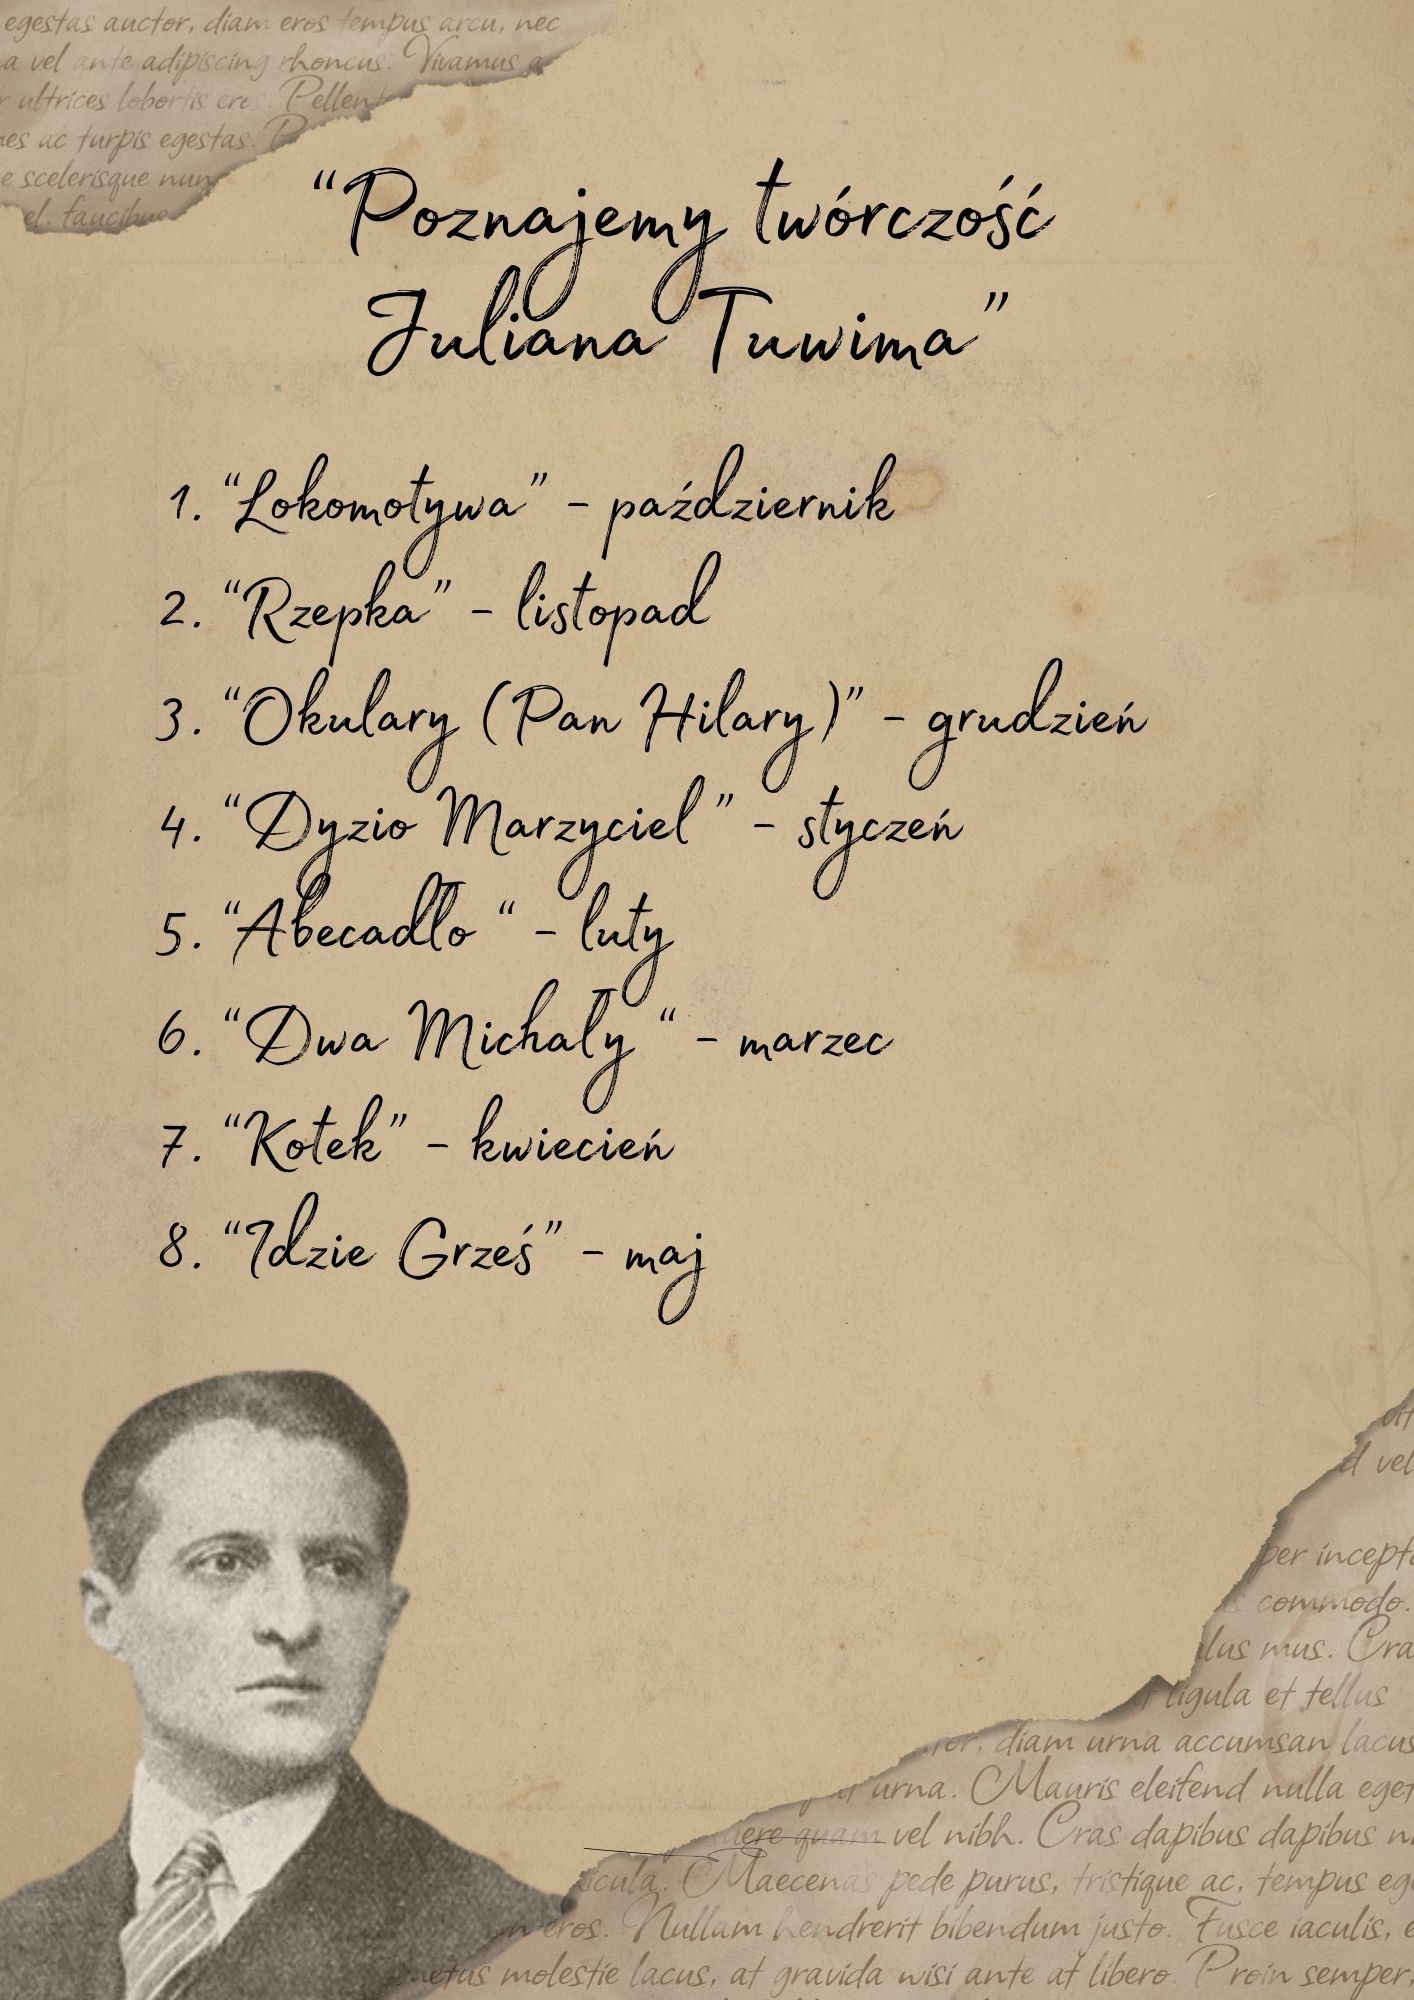 egestas auctor, diam eros tempus arcu, nec
a vel ante adipiscing rhoncus. Vivamus a
r ultrices lobortis eros. Pellent
nes ac turpis egestas. P
e scelerisque nun
el, faucibus
“Poznajemy twórczość
Juliana Tuwima”
1. “Lokomotywa” - październik
2. “Rzepka” - listopad
3. “Okulary (Pan Hilary)” - grudzień
4. “Dyzio Marzyciel ” - styczeń
5. “Abecadło “ - luty
6. “Dwa Michały “ - marzec
7. “Kotek” - kwiecień
8. “Idzie Grześ” - maj
d vel
per incept
commodo.
lus mus. Cra
ligula et tellus
or, diam urna accumsan lacus
urna. Mauris eleifend nulla eget
uere quam vel nibh. Cras dapibus dapibus ni
icula. Maecenas pede purus, tristique ac, tempus eg
n eros. Nullam hendrerit bibendum justo. Fusce iaculis, e
metus molestie lacus, at gravida wisi ante at libero. Proin semper,